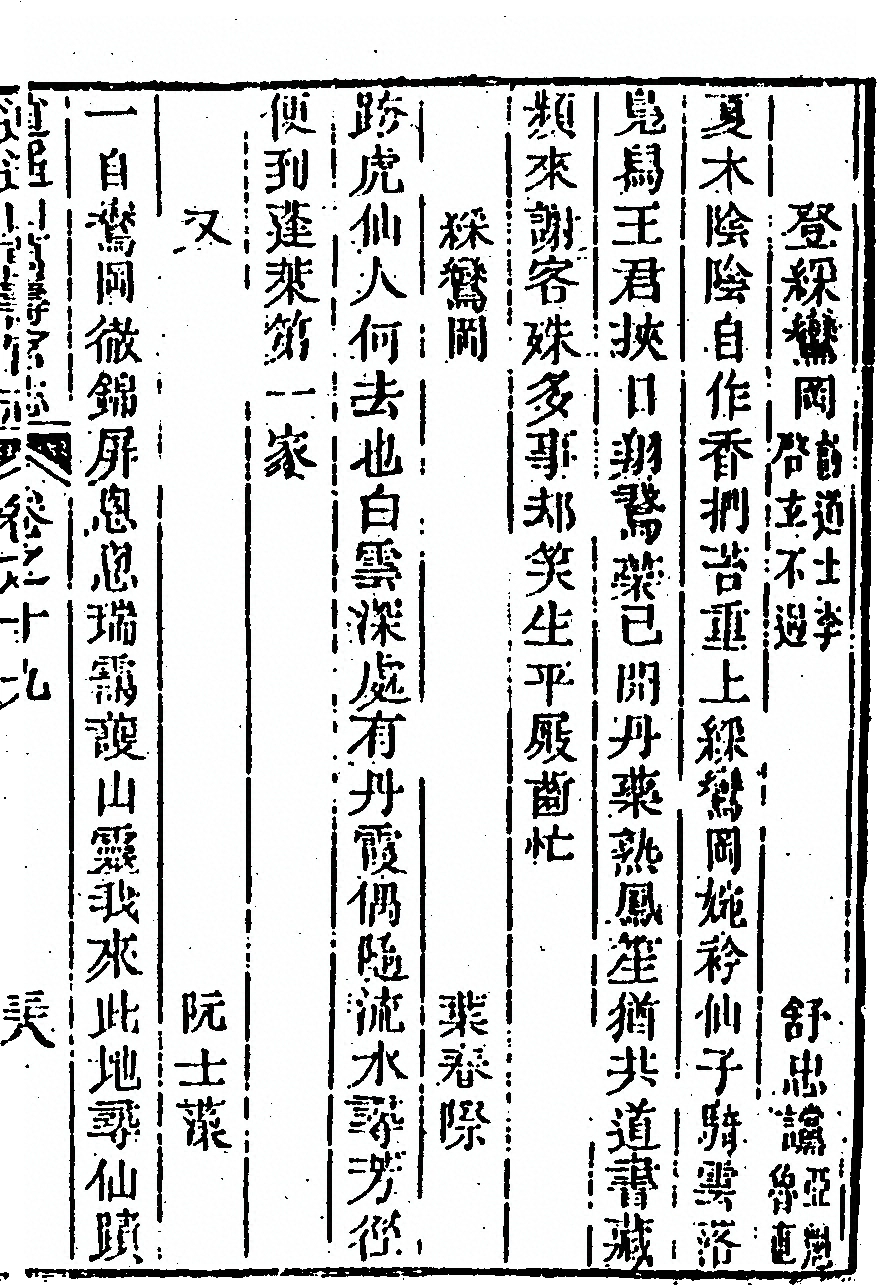 登綵鸞岡訪道士李啓立不遇　舒忠讜亞魁魯直
夏木陰陰自作香捫苔重上綵鸞岡婉衿仙子騎雲落
鳧舄王君挾日翔鵞藥已開丹藥熟鳳笙猶共道書藏
頻來謝客殊多事却笑生平屐齒忙
綵鸞岡　葉春際
跨虎仙人何去也白雲深處有丹霞偶隨流水尋芳徑
便到蓬萊第一家
又　阮士
一自鸞岡徹錦屏恖恖瑞靄護山靈我來此地尋仙蹟
逍遙山萬壽宮志　卷之十九